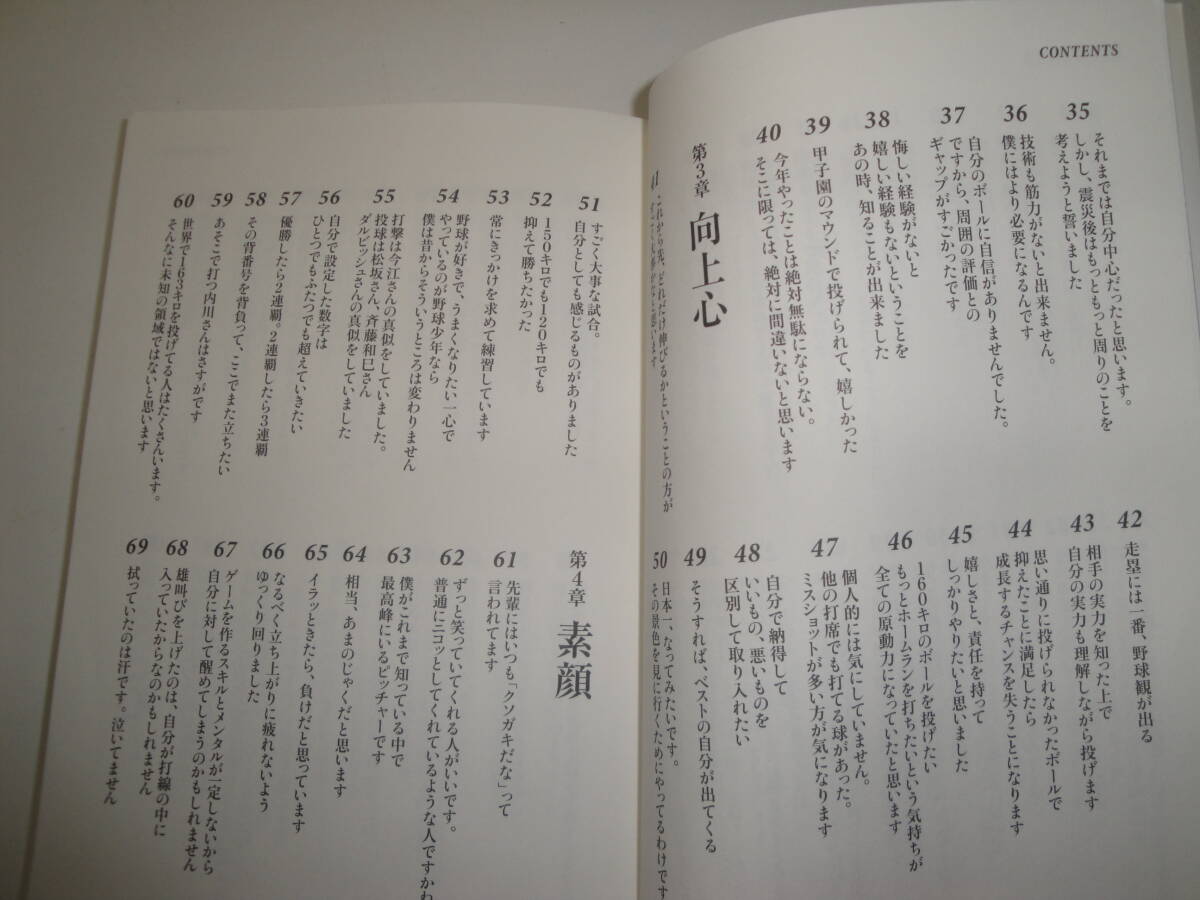 CONTENTS
35
それまでは自分中心だったと思います。
しかし、震災後はもっともっと周りのことを
考えようと誓いました
36
技術も筋力がないと出来ません。
僕にはより必要になるんです
37
自分のボールに自信がありませんでした。
ですから、周囲の評価との
ギャップがすごかったです
38
悔しい経験がないと
嬉しい経験もないということを
あの時、知ることが出来ました
39
甲子園のマウンドで投げられて、嬉しかった
40
今年やったことは絶対無駄にならない。
そこに限っては、絶対に間違いないと思います
第3章 向上心
41
これから先、どれだけ伸びるかということの方が
42
走塁には一番、野球観が出る
43
相手の実力を知った上で
自分の実力も理解しながら投げます
44
思い通りに投げられなかったボールで
抑えたことに満足したら
成長するチャンスを失うことになります
45
嬉しさと、責任を持って
しっかりやりたいと思いました
46
160キロのボールを投げたい
もっとホームランを打ちたいという気持ちが
全ての原動力になっていたと思います
47
個人的には気にしていません。
他の打席でも打てる球があった。
ミスショットが多い方が気になります
48
自分で納得して
いいもの、悪いものを
区別して取り入れたい
49
そうすれば、ベストの自分が出てくる
50
日本一、なってみたいです。
その景色を見に行くためにやってるわけです
51
すごく大事な試合。
自分としても感じるものがありました
52
150キロでも120キロでも
抑えて勝ちたかった
53
常にきっかけを求めて練習しています
54
野球が好きで、うまくなりたい一心で
やっているのが野球少年なら
僕は昔からそういうところは変わりません
55
打撃は今江さんの真似をしていました。
投球は松坂さん、斉藤和巳さん
ダルビッシュさんの真似をしていました
56
自分で設定した数字は
ひとつでもふたつでも超えていきたい
57
優勝したら2連覇。2連覇したら3連覇
58
その背番号を背負って、ここでまた立ちたい
59
あそこで打つ内川さんはさすがです
60
世界で163キロを投げてる人はたくさんいます。
そんなに未知の領域ではないと思います
第4章 素顔
61
先輩にはいつも「クソガキだな」って
言われてます
62
ずっと笑っていてくれる人がいいです。
普通にニコッとしてくれているような人ですかね
63
僕がこれまで知っている中で
最高峰にいるピッチャーです
64
相当、あまのじゃくだと思います
65
イラッときたら、負けだと思っています
66
なるべく立ち上がりに疲れないよう
ゆっくり回りました
67
ゲームを作るスキルとメンタルが一定しないから
自分に対して醒めてしまうのかもしれません
68
雄叫びを上げたのは、自分が打線の中に
入っていたからなのかもしれません
69
拭っていたのは汗です。泣いてません